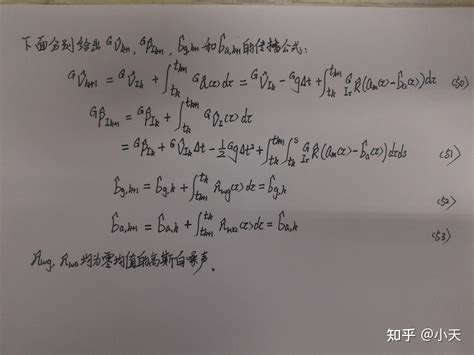 下面分别给出 ᴳv̂ₖ₊₁, ᴳp̂ᵢₖ₊₁, b̂g,k+1 和 b̂a,k+1 的传播公式:
ᴳv̂ₖ₊₁ = ᴳv̂ᵢₖ + ∫_{tₖ}^{tₖ₊₁} ᴳâ(τ)dτ = ᴳv̂ᵢₖ - ᴳgΔt + ∫_{tₖ}^{tₖ₊₁} ᴳ_{Iτ}R̂(aₘ(τ)-b̂ₐ(τ))dτ (50)
ᴳp̂ᵢₖ₊₁ = ᴳp̂ᵢₖ + ∫_{tₖ}^{tₖ₊₁} ᴳv̂_I(τ)dτ
= ᴳp̂ᵢₖ + ᴳv̂ᵢₖΔt - ½ᴳgΔt² + ∫_{tₖ}^{tₖ₊₁}∫_{tₖ}^{s} ᴳ_{Iτ}R̂(aₘ(τ)-b̂ₐ(τ))dτds (51)
b̂g,k+1 = b̂g,k + ∫_{tₖ₊₁}^{tₖ} n_{wg}(τ)dτ = b̂g,k (52)
b̂a,k+1 = b̂a,k + ∫_{tₖ₊₁}^{tₖ} n_{wa}(τ)dτ = b̂a,k (53)
n_{wg}, n_{wa} 均为零均值的高斯白噪声。
知乎 @小天